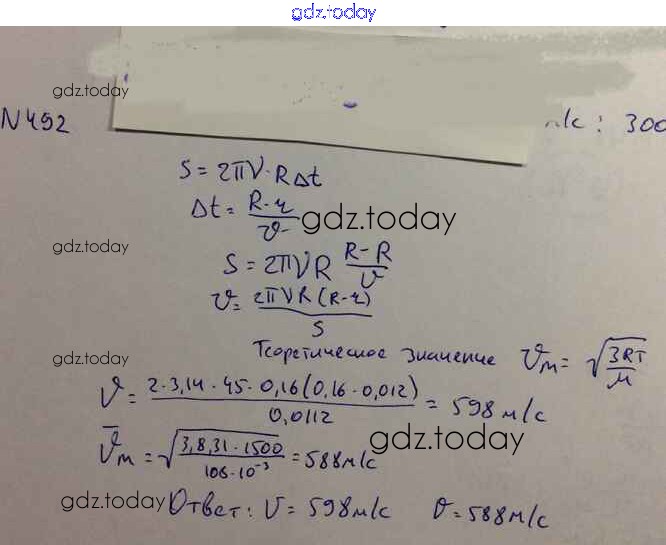 gdz.today
gdz.today
N492
с: 300
S = 2πν · RΔt
Δt = (R - r)/v
gdz.today
gdz.today
S = 2πνR (R - R)/v
v = 2πνR(R - r)/S
gdz.today
Теоретическое значение vм = √(3RT/μ)
v = 2·3,14·45·0,16(0,16-0,012)/0,0112 = 598 м/с
v̄м = √(3,8,31·1500/108·10⁻³) = 588м/с
gdz.today
gdz.today
Ответ: v = 598м/с v = 588м/с